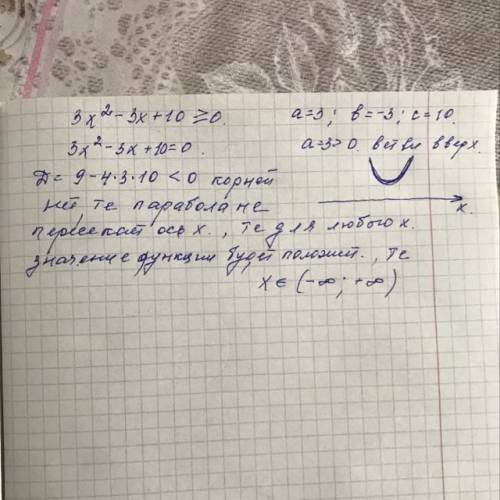 3x² - 3x + 10 ≥ 0. a=3; в=-3; c=10.
3x² - 3x + 10 = 0. a=3>0. ветви вверх.
Д = 9 - 4·3·10 < 0 корней
нет те парабола не
x.
пересекает ось x., те для любого x.
значение функции будет положит., те
x ∈ (-∞; +∞)